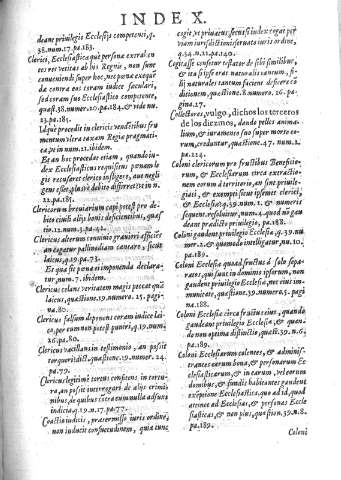 INDEX.
deane privilegio Ecclesiæ competenti, q.
38.num.17.pa.183.
Clerici, Ecclesiæ quæ persone extrahen
tes res vetitas ab hoc Regnis, non sunt
conveniendi super hoc, nec pœna exequē
da contra eos coram iudice sæculari,
sed coram suo Ecclesiastico competente,
quæst.38.numer.20.pa.184.& vide nu.
23.pa.185.
Idque procedit in clericis vendētibus fru
mentum ultra taxam Regiæ pragmati-
cæ pe in num.22.ibidem.
Et an hoc procedat etiam, quando iu-
dex Ecclesiasticus requisitus pœnam le
gis recusaret clericis infligere, aut negli
gens esset, plusve debito differret in n.
22.pa.185.
Clericorum breviarium capi potest pro de-
bito civili aliis bonis deficientibus, quæs
tio 12.num.3.pa.42.
Clericus alterum communio graviori afficiē
an degatur palinodiam cantare, sicut
laicus, q.19.pa.73.
Et qua sit pœna imponenda declara-
tur num.7.ibidem.
Clericus celans veritatem magis peccat quā
laicus, quæstione 19.numero 25. pagi-
na.80.
Clericus falsum deponens coram iudice lai-
co, per eum non potest puniri, q.19.num.
26.pa.80.
Clericus vacillans in testimonio, an possit
torqueri ibidē, quæstione.19.numer.24.
pa.79.
Clericus legitime tortus confitens in tortu-
ra, an possit interrogari de aliis crimi
nibus, de quibus extra eum nulla adsunt
indicia, q.19.n.17.pa.77.
Coactio iudicis, prætermisso iuris ordine,
non inducit consuetudinem, quia tunc
cogit, ut privatus, secus si iudex cogat per
viam iurisdictionis servato iuris ordine,
q.34.n.21.pa.140.
Cogitasse confiteri testator de sibi similibus,
& ita si ipse erat naturalis tantum, fi-
lii naturales tantum faciunt deficere cō
ditionem, quæstione, 8.numero.26. pa-
gina.27.
Collectores, vulgo, dichos los terceros
de los diezmos, dando pelles anima-
lium, & iuramento suo super morto eo-
rum, creduntur, quæstione.47. num.2.
pa.224.
Coloni clericorum pro fructibus Beneficio-
rum, & Ecclesiarum circa extractio-
nem eorum à territorio, an sint privile-
giati, & exempti sicut ipsemet clerici,
& Ecclesia? q.39.num.1. & numeris
sequent.resolvitur, num.4.quod nō gau-
deant prædicto privilegio, pa.188.
Coloni gaudent privilegio Ecclesiæ, q.39. nu
mer.2.& quomodo intelligatur, nu.10.
pa.189.
Coloni Ecclesiæ quoad fructus à solo sepa-
ratos, qui sunt in dominio ipsorum, non
gaudent privilegio Ecclesiæ, nec eius im-
munitate, quæstione.39.numero.5. pagi-
na 188.
Coloni Ecclesiæ circa fructus eius, quando
gaudeant privilegio Ecclesiæ, & quan-
do non optima distinctio, quæst.39.n.6.
pa.189.
Coloni Ecclesiarum colentes, & adminis-
trantes earum bona, & personarum Ec
clesiasticarum, & in earum, vel eorum
domibus, & fundis habitantes gaudent
exēptione Ecclesiastica, quo ad id, quod
attenet ad Ecclesias, & personas Eccle
siasticas, & non plus, quæstion.39.n.8.
pa.189.
Coloni